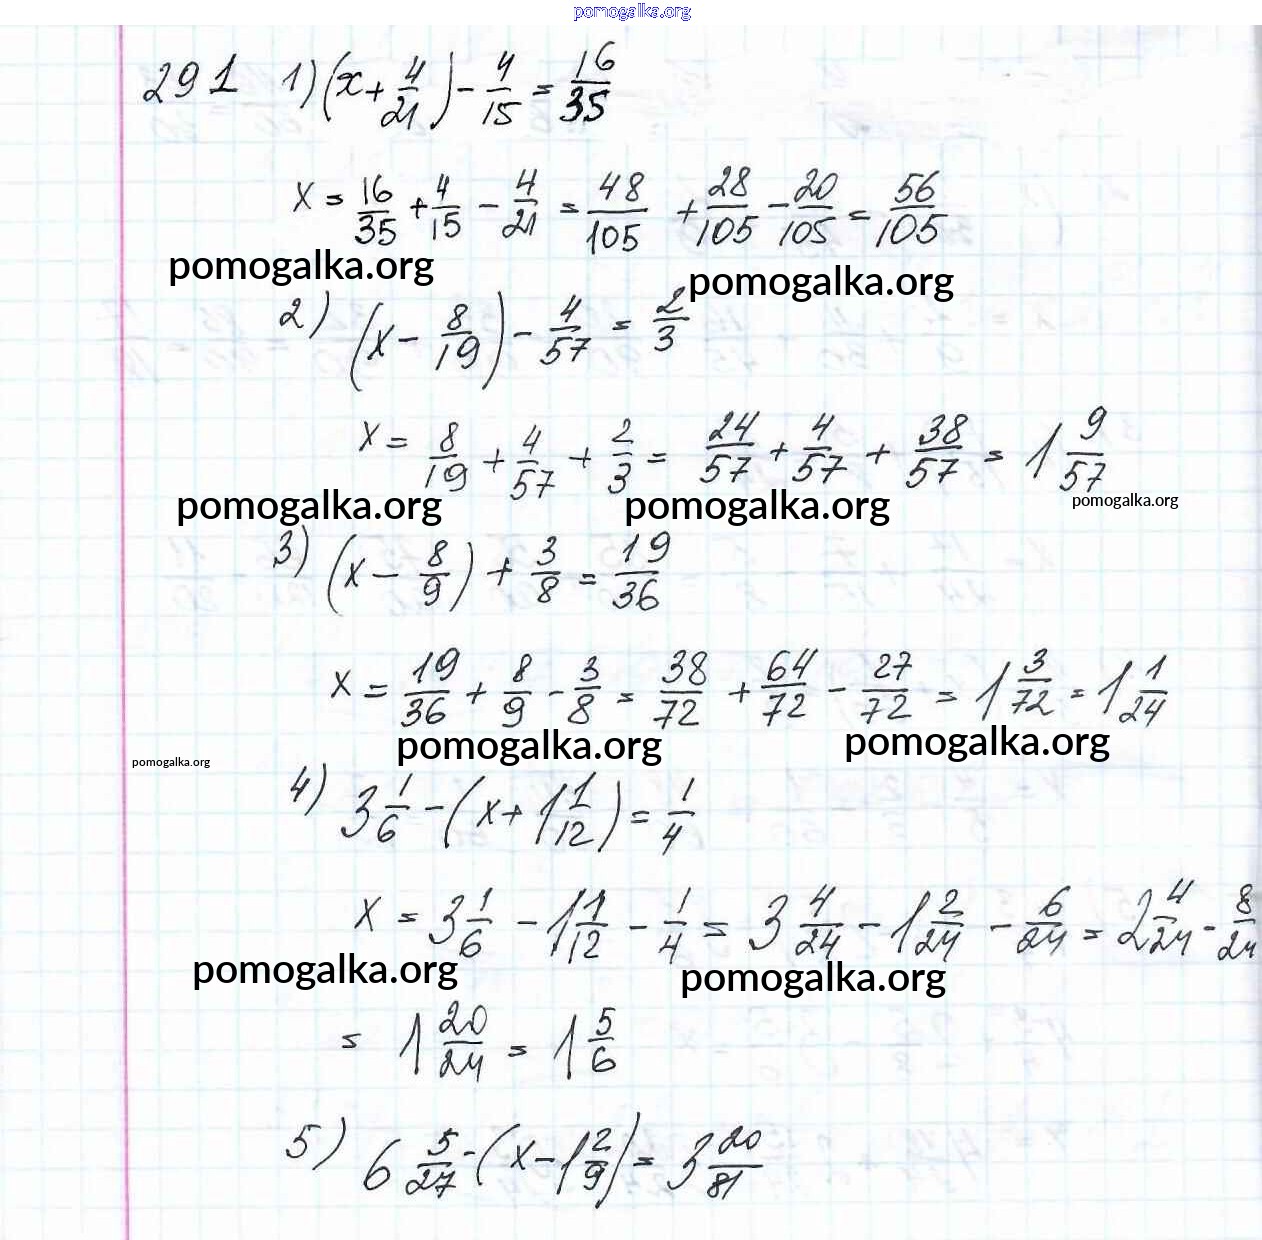 pomogalka.org
291 1) (x + 4/21) - 4/15 = 16/35
x = 16/35 + 4/15 - 4/21 = 48/105 + 28/105 - 20/105 = 56/105
pomogalka.org pomogalka.org
2) (x - 8/19) - 4/57 = 2/3
x = 8/19 + 4/57 + 2/3 = 24/57 + 4/57 + 38/57 = 1 9/57
pomogalka.org pomogalka.org pomogalka.org
3) (x - 8/9) + 3/8 = 19/36
x = 19/36 + 8/9 - 3/8 = 38/72 + 64/72 - 27/72 = 1 3/72 = 1 1/24
pomogalka.org pomogalka.org pomogalka.org
4) 3 1/6 - (x + 1 1/12) = 1/4
x = 3 1/6 - 1 1/12 - 1/4 = 3 4/24 - 1 2/24 - 6/24 = 2 4/24 - 8/24
pomogalka.org pomogalka.org
= 1 20/24 = 1 5/6
5) 6 5/27 - (x - 1 2/9) = 3 20/81